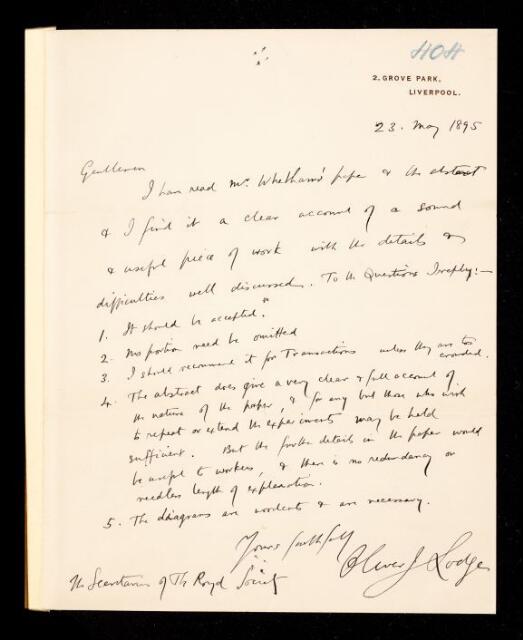 404
2, GROVE PARK,
LIVERPOOL.
23. May 1895
Gentlemen
I have read Mr. Whetham's paper & the abstract
& I find it a clear account of a sound
& useful piece of work with the details &
difficulties well discussed. To the Questions I reply:—
1. It should be accepted.
2. No portion need be omitted
3. I should recommend it for Transactions unless they are too
crowded.
4. The abstract does give a very clear & full account of
the nature of the paper, & for any but those who wish
to repeat or extend the experiments may be held
sufficient. But the further details in the paper would
be useful to workers, & there is no redundancy or
needless length of explanation.
5. The diagrams are & are necessary.
Yours faithfully
Oliver J Lodge
The Secretaries of The Royal Society